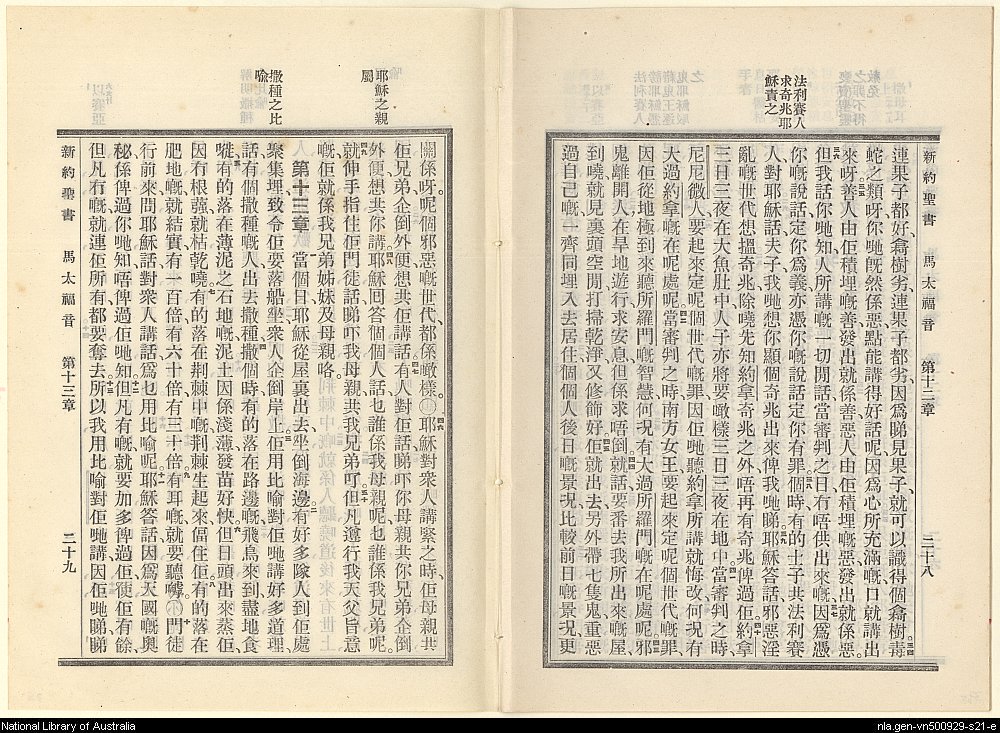 法利賽人
求奇兆耶
穌責之
新約聖書 馬太福音 第十二章 二十八
連果子都好翕樹劣連果子都劣因爲睇見果子就可以識得個翕樹毒
蛇之類呀你哋旣然係惡點能講得好話呢因爲心所充滿嘅口就講出
來呀善人由佢積埋嘅善發出就係善惡人由佢積埋嘅惡發出就係惡
但我話你哋知人所講嘅一切閒話當審判之日有唔供出來嘅因爲憑
你嘅說話定你爲義亦憑你嘅說話定你有罪個時有的士子共法利賽
人對耶穌話夫子我哋想你顯個奇兆出來俾我哋睇耶穌答話邪惡淫
亂嘅世代想搵奇兆除嘵先知約拿奇兆之外唔再有奇兆俾過佢約拿
三日三夜在大魚肚中人子亦將要噉樣三日三夜在地中當審判之時
尼尼微人要起來定呢個世代嘅罪因佢哋聽約拿所講就悔改何況有
大過約拿嘅在呢處呢當審判之時南方女王要起來定呢個世代嘅罪
因佢從地極到來聽所羅門嘅智慧何況有大過所羅門嘅在呢處呢邪
鬼離開人在旱地遊行求安息但係求唔倒就話要番去我所出來嘅屋
到嘵就見裏頭空閒打掃乾淨又修飾好佢就出去另外帶七隻鬼重惡
過自己嘅一齊同埋入去居住個個人後日嘅景況比較前日嘅景況更
耶穌之親
屬
撒種之比
喩
關係呀呢個邪惡嘅世代都係噉樣耶穌對衆人講緊之時佢母親共
佢兄弟企倒外便想共佢講話有人對佢話睇吓你母親共你兄弟企倒
外便想共你講耶穌回答個個人話乜誰係我母親呢乜誰係我兄弟呢
就伸手指住佢門徒話睇吓我母親共我兄弟吖但凡遵行我天父旨意
嘅佢就係我兄弟姊妹及母親咯
第十三章 當個日耶穌從屋裏出去坐倒海邊有好多隊人到佢處
聚集埋致令佢要落船坐衆人企倒岸上佢用比喻對佢哋講好多道理
話有個撒種嘅人出去撒種撒個時有的落在路邊嘅飛鳥來到盡地食
嘥有的落在薄泥之石地嘅泥土因係淺薄發苗好快但日頭出來蒸佢
因有根蔃就枯乾嘵有的落在荆棘中嘅荆棘生起來偪住佢有的落在
肥地嘅就結實有一百倍有六十倍有三十倍有耳嘅就要聽嚹門徒
行前來問耶穌話對衆人講話爲乜用比喻呢耶穌答話因爲天國嘅奥
秘係俾過你哋知唔俾過佢哋知但凡有嘅就要加多俾過佢使佢有餘
但凡冇嘅就連佢所有都要奪去所以我用比喻對佢哋講因佢哋睇睇
新約聖書 馬太福音 第十三章 二十九
National Library of Australia
nla.gen-vn500929-s21-e